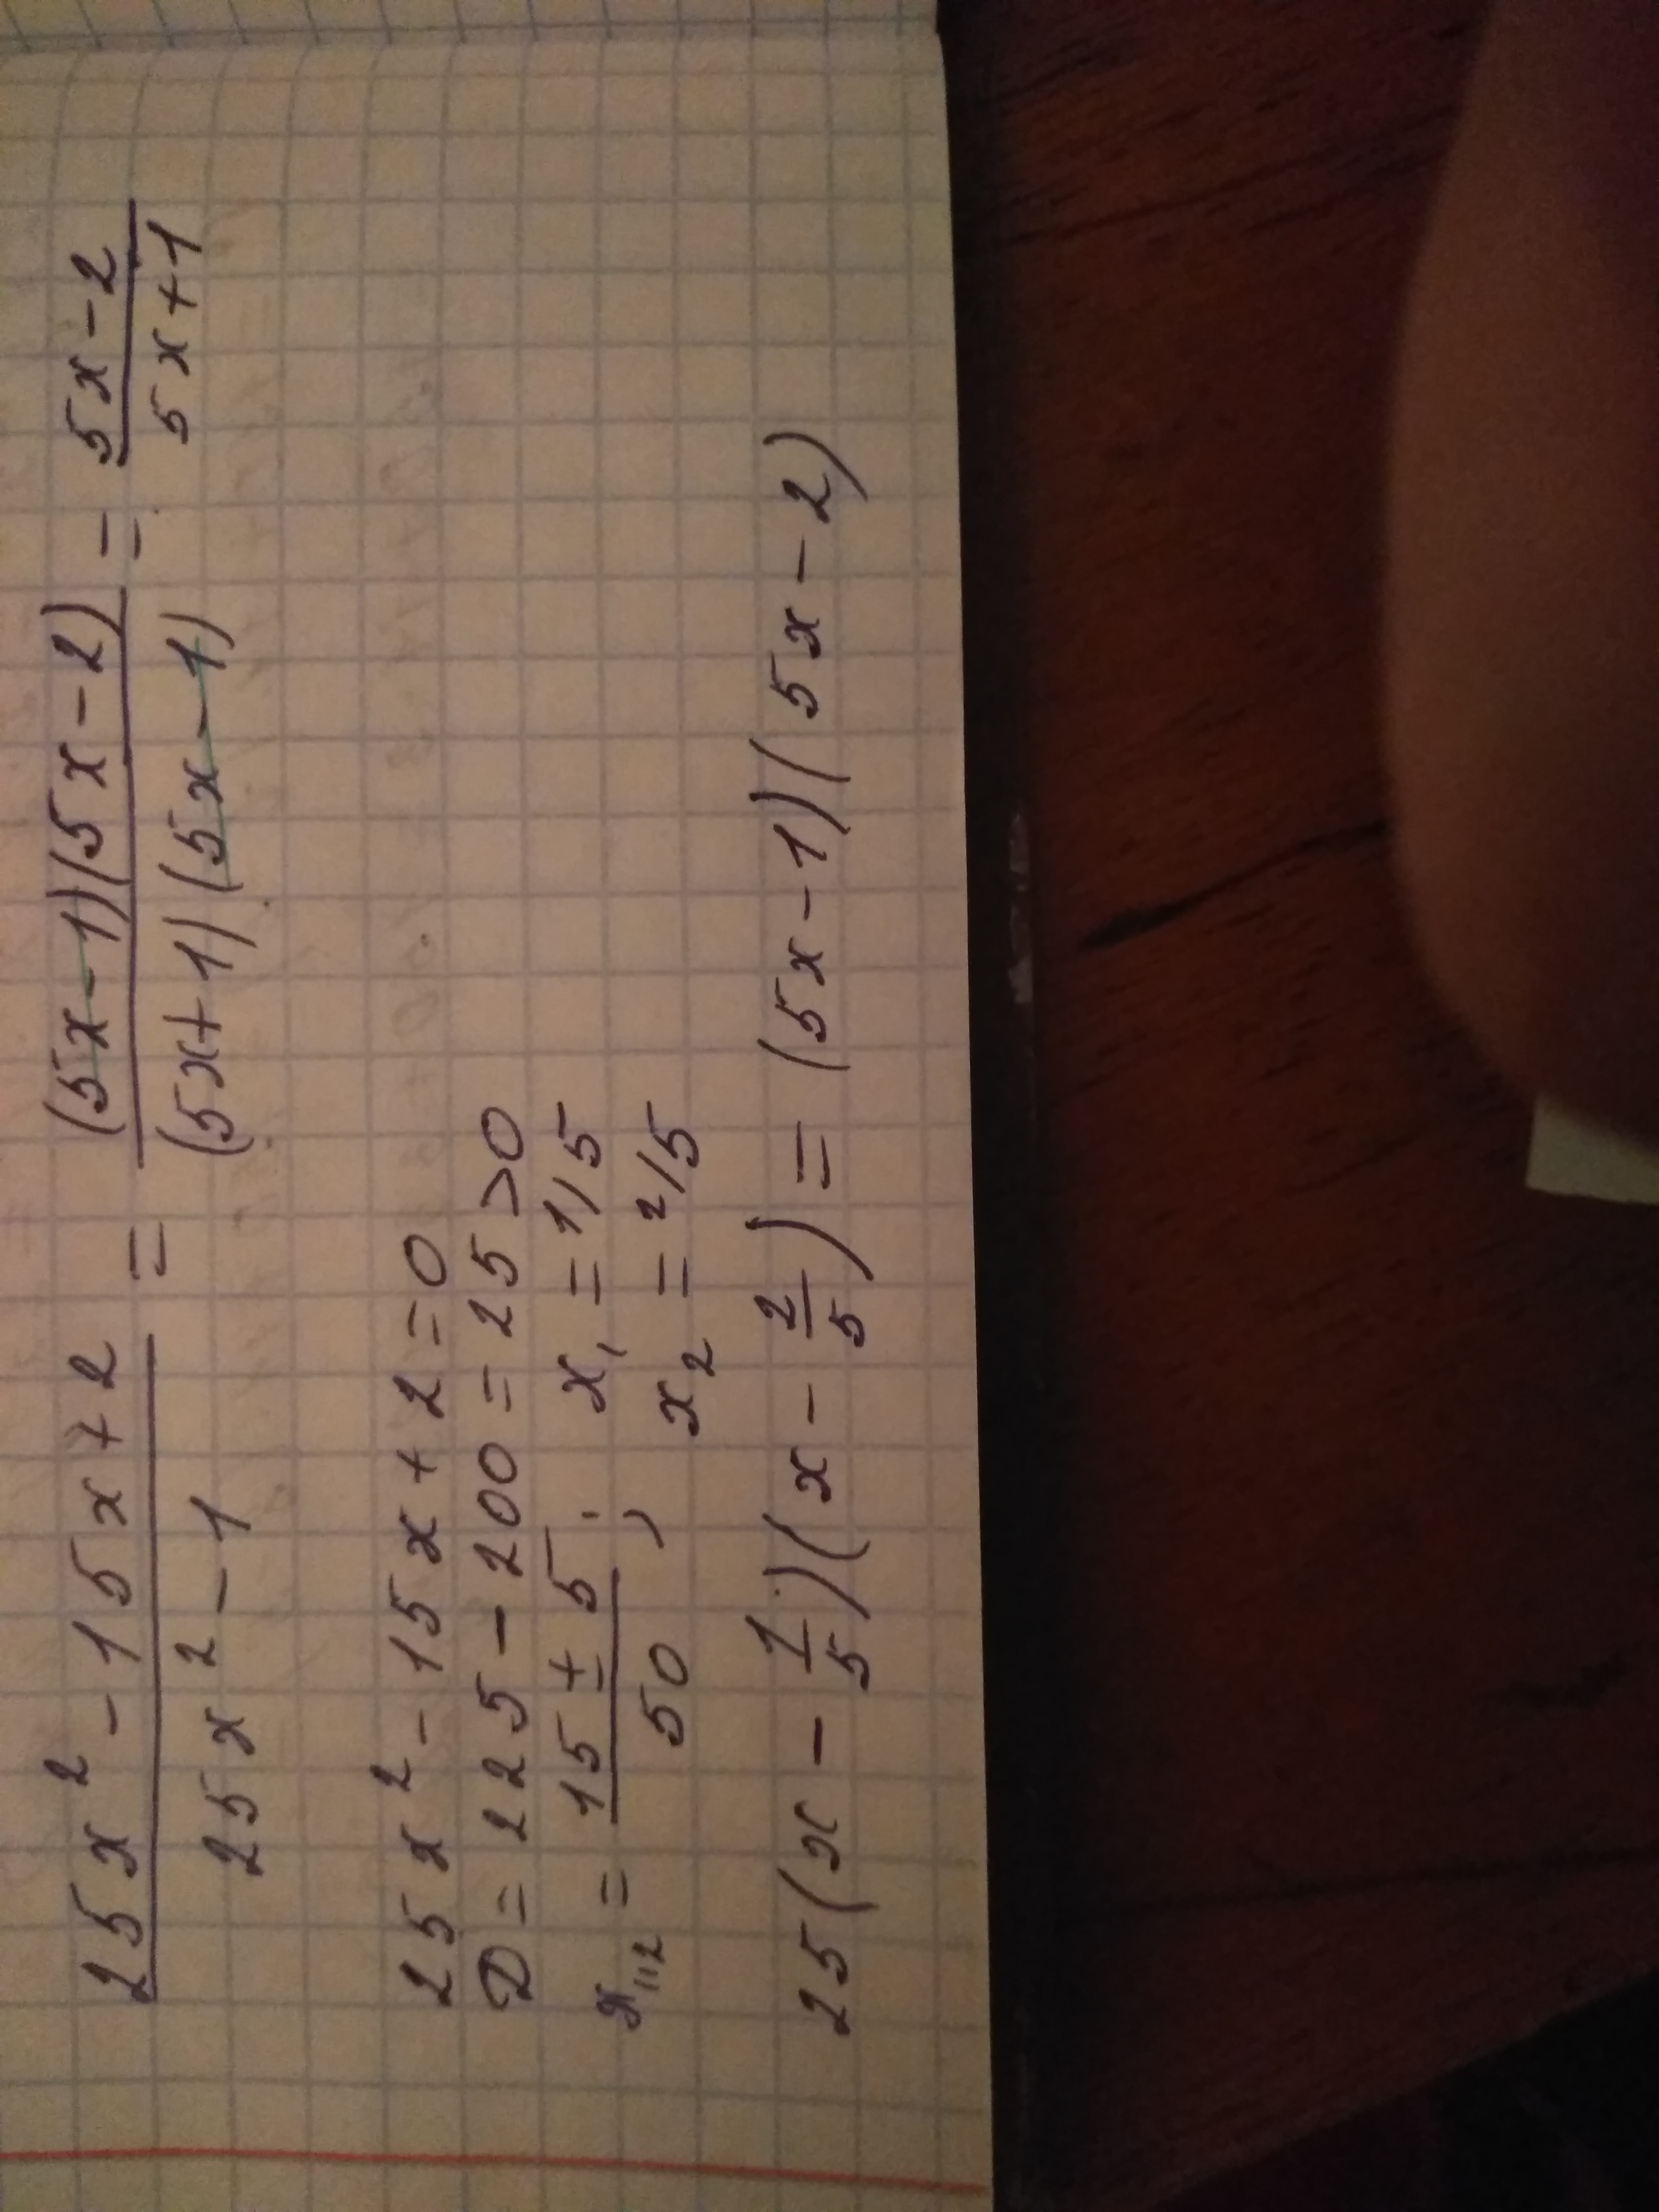 25x² - 15x + 2 / 25x² - 1 = (5x - 1)(5x - 2) / (5x + 1)(5x - 1) = 5x - 2 / 5x + 1
25x² - 15x + 2 = 0
D = 225 - 200 = 25 > 0
x₁,₂ = 15 ± 5 / 50 ; x₁ = 1/5
x₂ = 2/5
25(x - 1/5)(x - 2/5) = (5x - 1)(5x - 2)